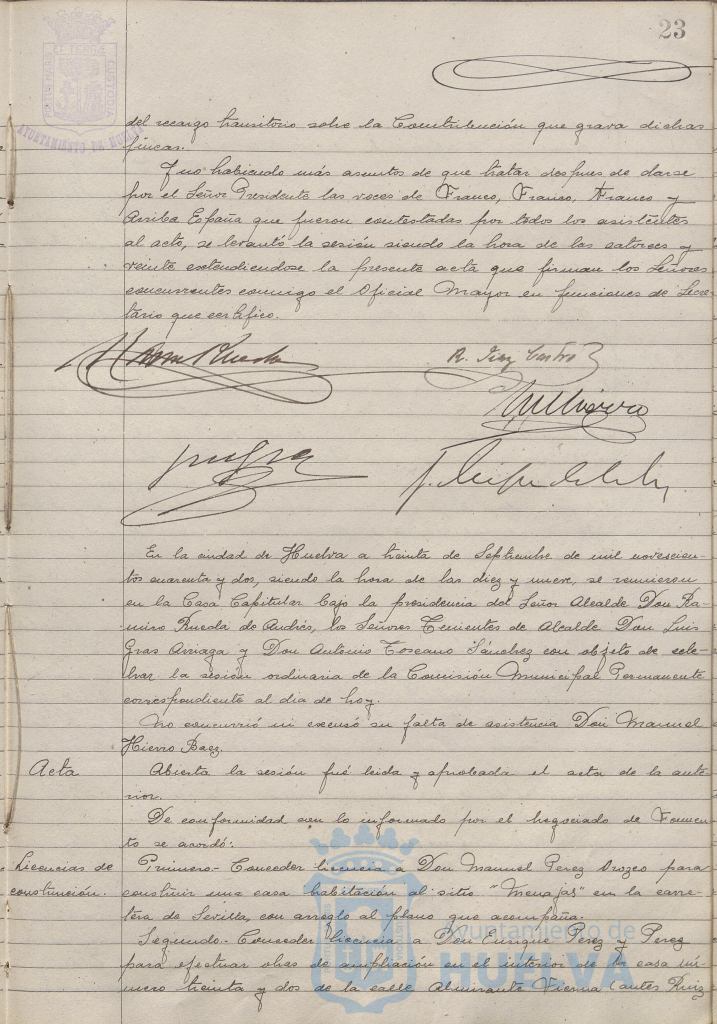 23
AYUNTAMIENTO DE HUELVA
del recargo transitorio sobre la Contribución que grava dichas
fincas.
Y no habiendo más asuntos de que tratar despues de darse
por el Señor Presidente las voces de Franco, Franco, Franco y
Arriba España que fueron contestadas por todos los asistentes
al acto, se levantó la sesión siendo la hora de las catorce y
veinte extendiendose la presente acta que firman los Señores
concurrentes conmigo el Oficial Mayor en funciones de Secre-
tario que certifico.
En la ciudad de Huelva a treinta de Septiembre de mil novescien-
tos cuarenta y dos, siendo la hora de las diez y nueve, se reunieron
en la Casa Capitular bajo la presidencia del Señor Alcalde Don Ra-
miro Rueda de Andrés, los Señores Tenientes de Alcalde Don Luis
Gras Arriaga y Don Antonio Toscano Sánchez con objeto de cele-
brar la sesión ordinaria de la Comisión Municipal Permanente
correspondiente al dia de hoy.
No concurrió ni excusó su falta de asistencia Don Manuel
Hierro Baez.
Acta
Abierta la sesión fué leida y aprobada el acta de la ante-
rior.
De conformidad con lo informado por el Negociado de Fomen-
to se acordó:
Licencias de
construcción.
Primero- Conceder licencia a Don Manuel Perez Orozco para
construir una casa habitación al sitio "Menajas" en la carre-
tera de Sevilla, con arreglo al plano que acompaña.
Segundo- Conceder licencia a Don Enrique Perez y Perez
para efectuar obras de ampliación en el interior de la casa nú-
mero treinta y dos de la calle Almirante Vierna (antes Ruiz
Ayuntamiento de
HUELVA